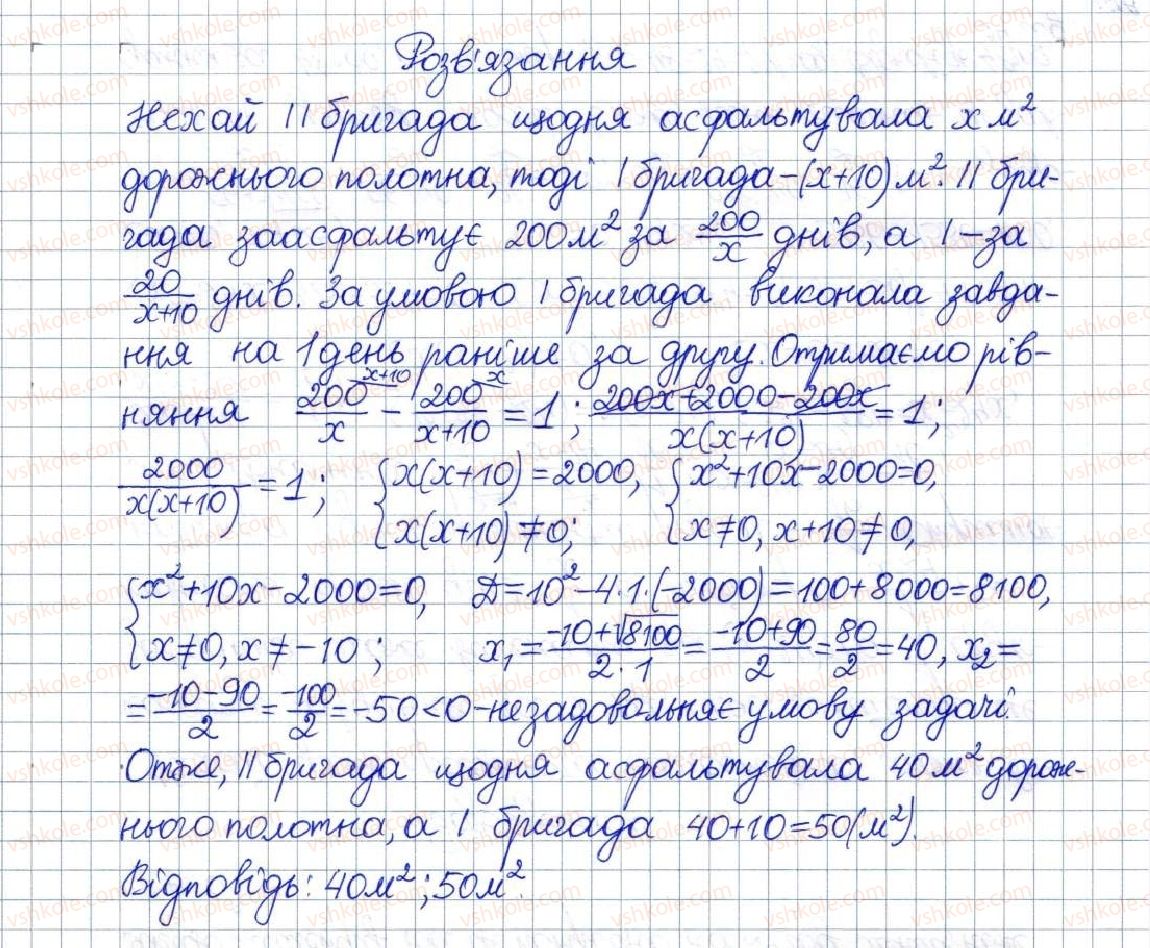 Розв'язання
Нехай II бригада щодня асфальтувала x м²
дорожнього полотна, тоді I бригада – (x+10) м². II бри-
гада заасфальтує 200 м² за 200/x днів, а I – за
20/(x+10) днів. За умовою I бригада виконала завда-
ння на 1 день раніше за другу. Отримаємо рів-
няння 200/x ^(x+10) – 200/(x+10) ^x = 1; (200x+2000–200x)/(x(x+10)) = 1;
2000/(x(x+10)) = 1; { x(x+10) = 2000, { x²+10x–2000=0,
x(x+10) ≠ 0; x≠0, x+10≠0,
{ x²+10x–2000=0, Д=10²–4·1·(–2000)=100+8000=8100,
x≠0, x≠–10; x₁ = (–10+√8100)/(2·1) = (–10+90)/2 = 80/2 = 40, x₂ =
= (–10–90)/2 = –100/2 = –50<0 – не задовольняє умову задачі.
Отже, II бригада щодня асфальтувала 40 м² дорож-
нього полотна, а I бригада 40+10=50 (м²).
Відповідь: 40 м²; 50 м².